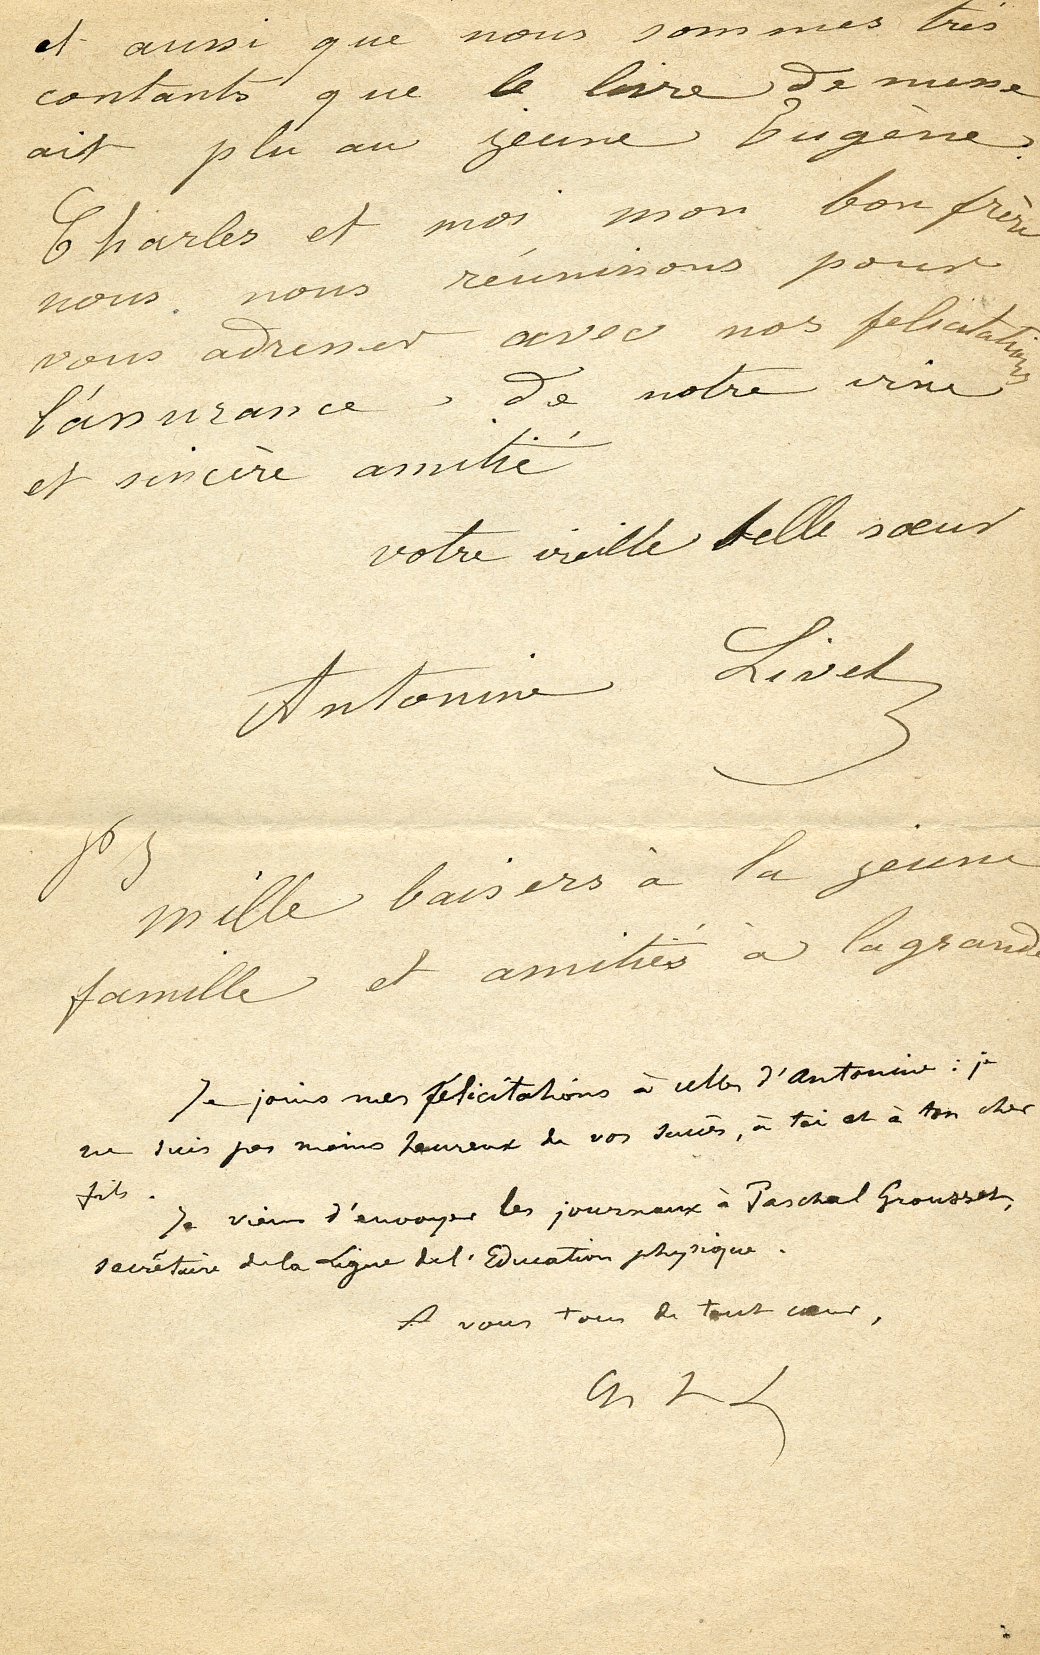 et aussi que nous sommes très
contants que le livre de messe
ait plu au jeune Eugène.
Charles et moi mon bon frère
nous nous réunissons pour
vous adresser avec nos felicitations
l'assurance de notre vive
et sincère amitié
votre vieille belle sœur
Antonine Livet
ps
mille baisers à la jeune
famille et amitiés à la grande
Je joins mes félicitations à celles d'Antonine : je
ne suis pas moins heureux de vos succès, à toi et à ton cher
fils.
Je viens d'envoyer les journaux à Paschal Grousset,
secrétaire de la Ligue de l'Education physique.
A vous tous de tout cœur,
Ch L L